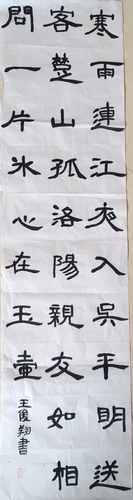 寒雨連江夜入吳平明送
客楚山孤洛陽親友如相
問一片冰心在玉壺
王俊翔書